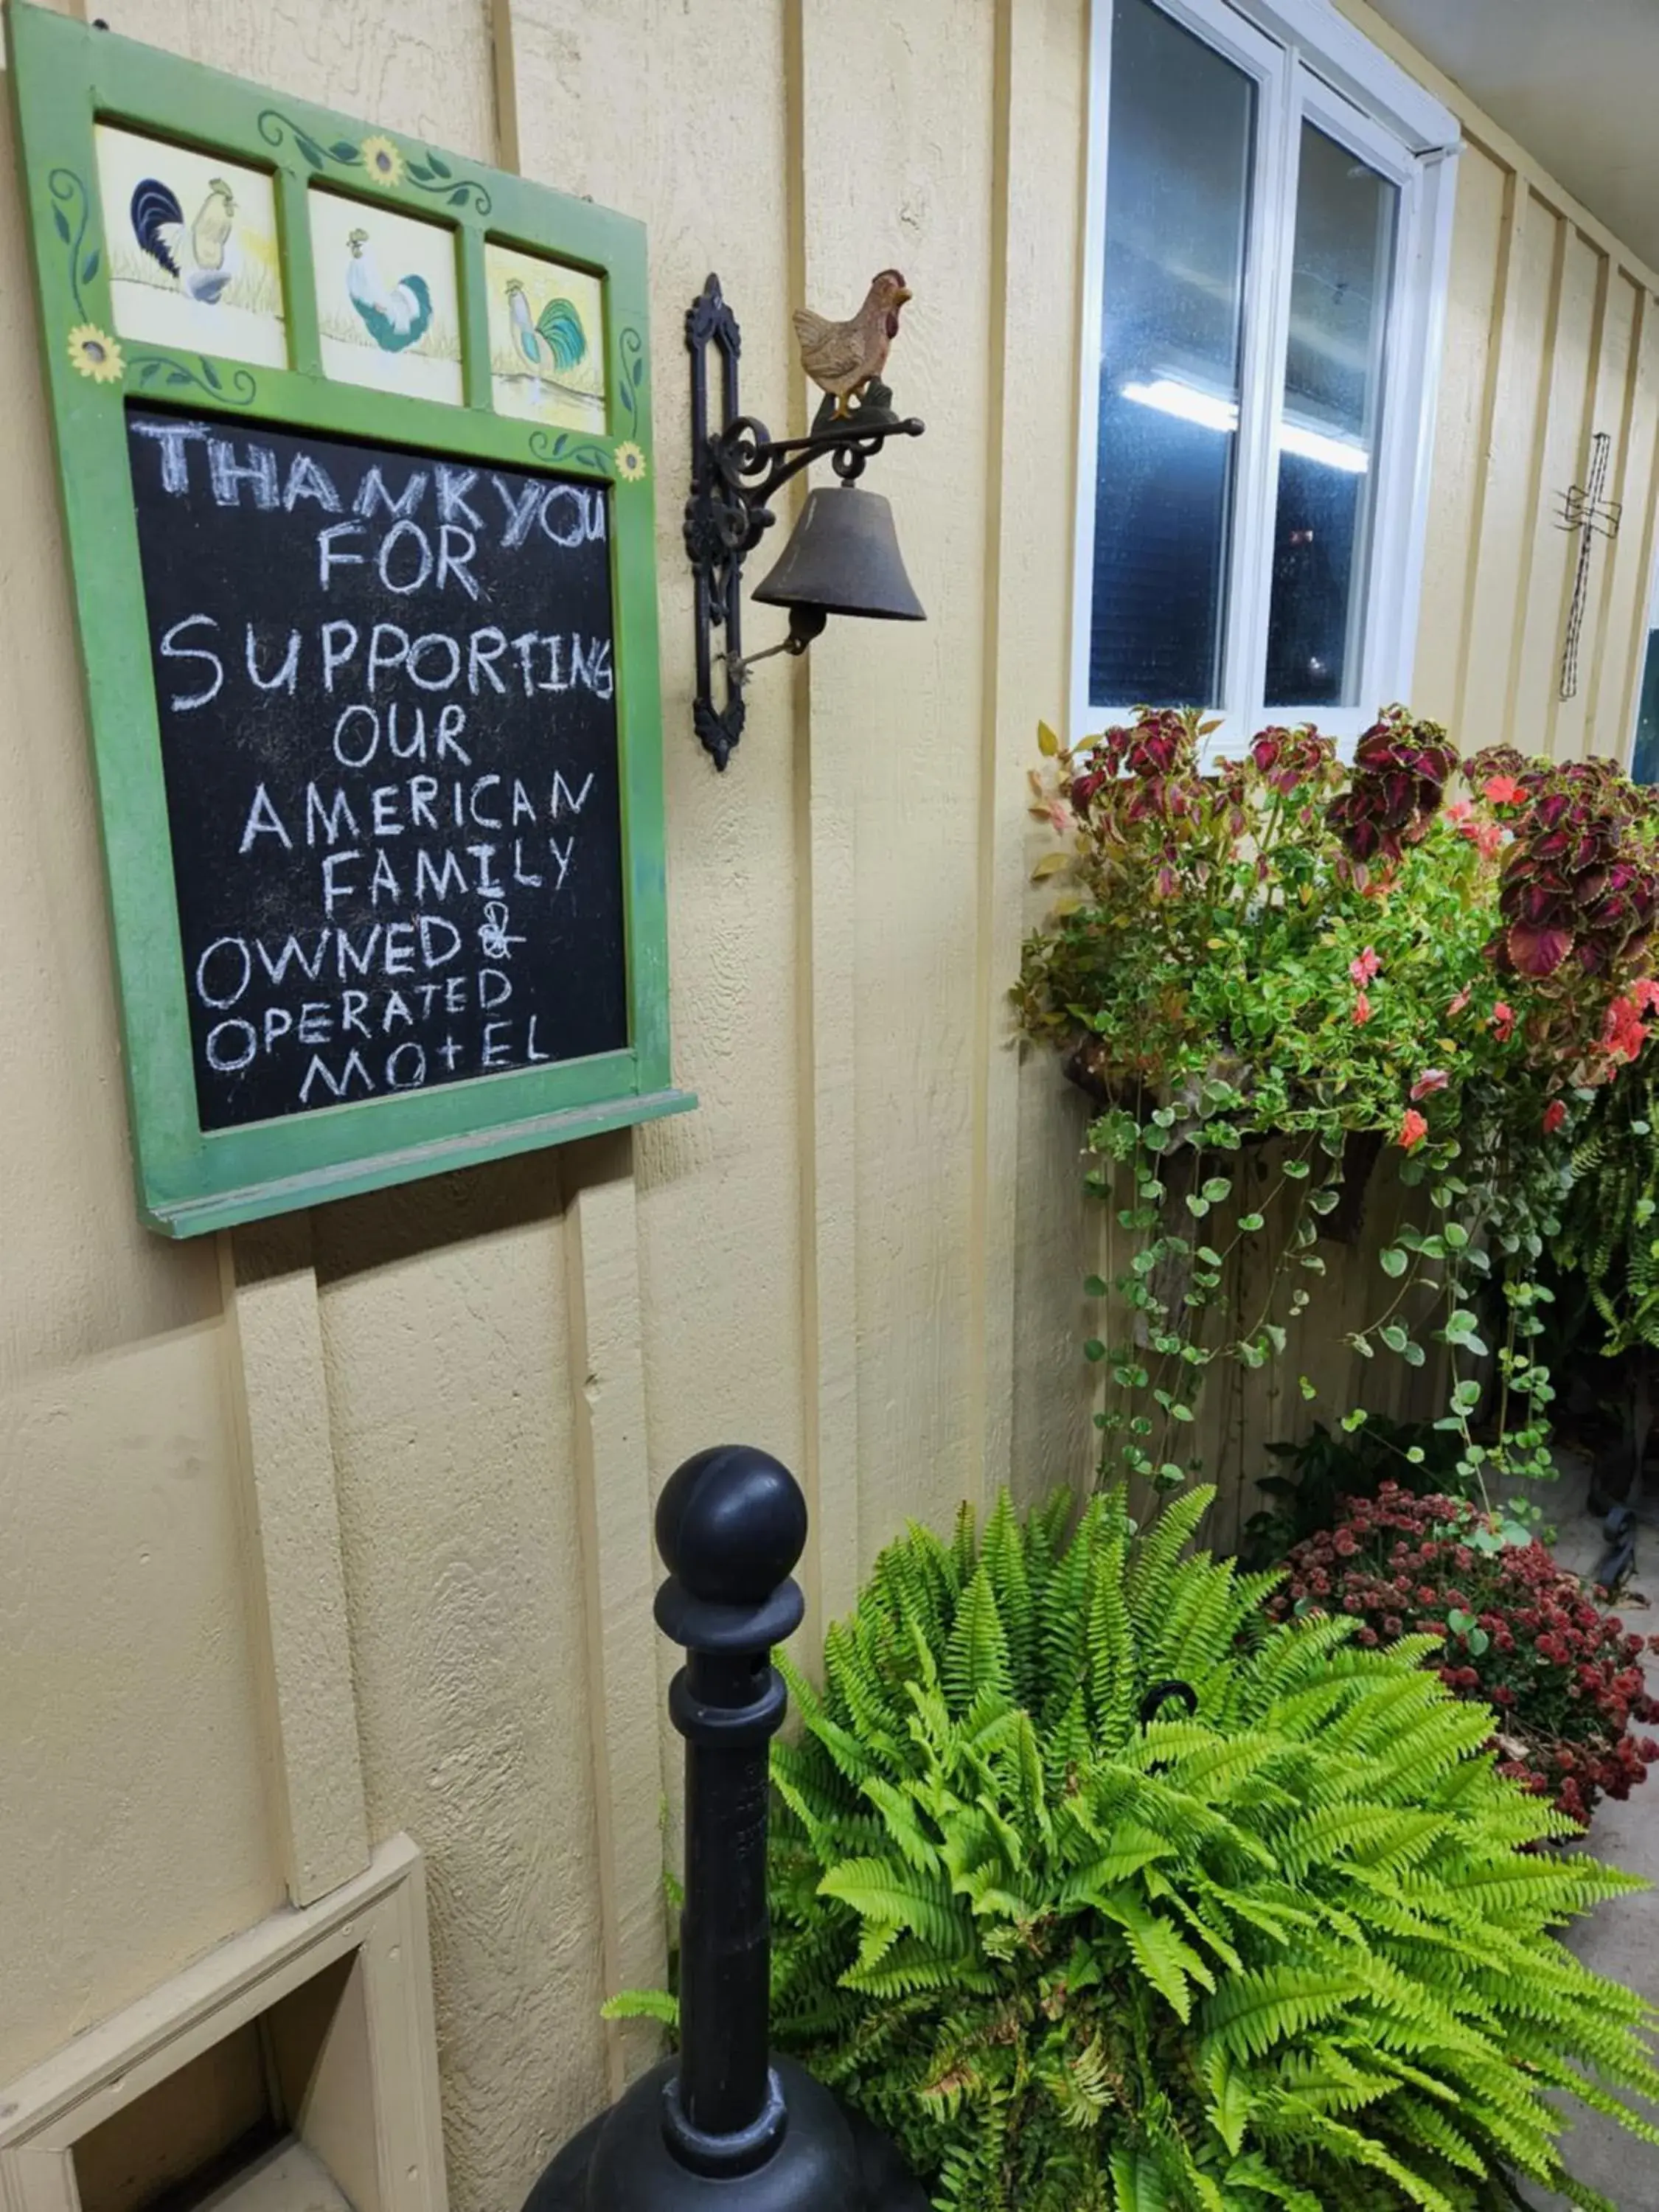 THANK YOU
FOR
SUPPORTING
OUR
AMERICAN
FAMILY
OWNED &
OPERATED
MOtEL